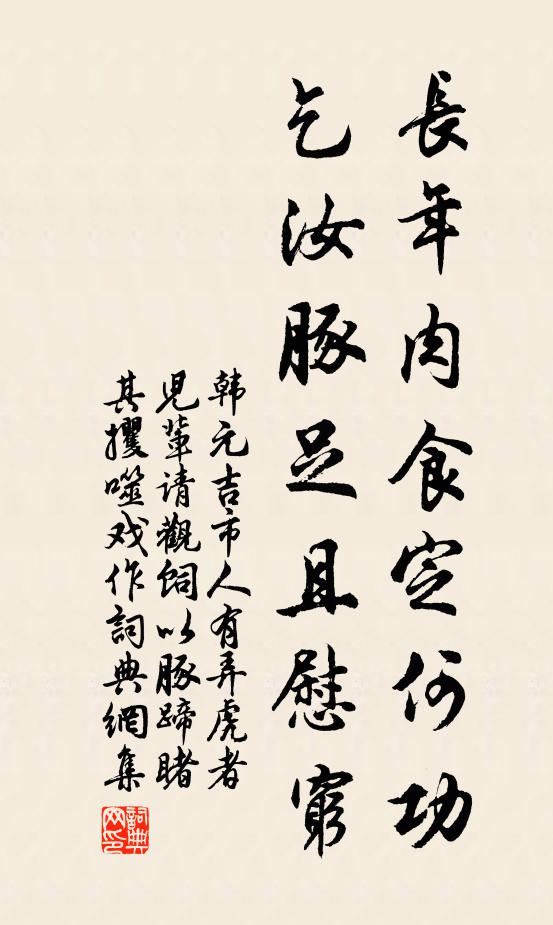 長年肉食定何功
乞汝豚足且慰窮
韩元吉市人有弄虎者
児輩请觀飼以豚蹄睹
其攫噬戏作詞典網集
詞典网印